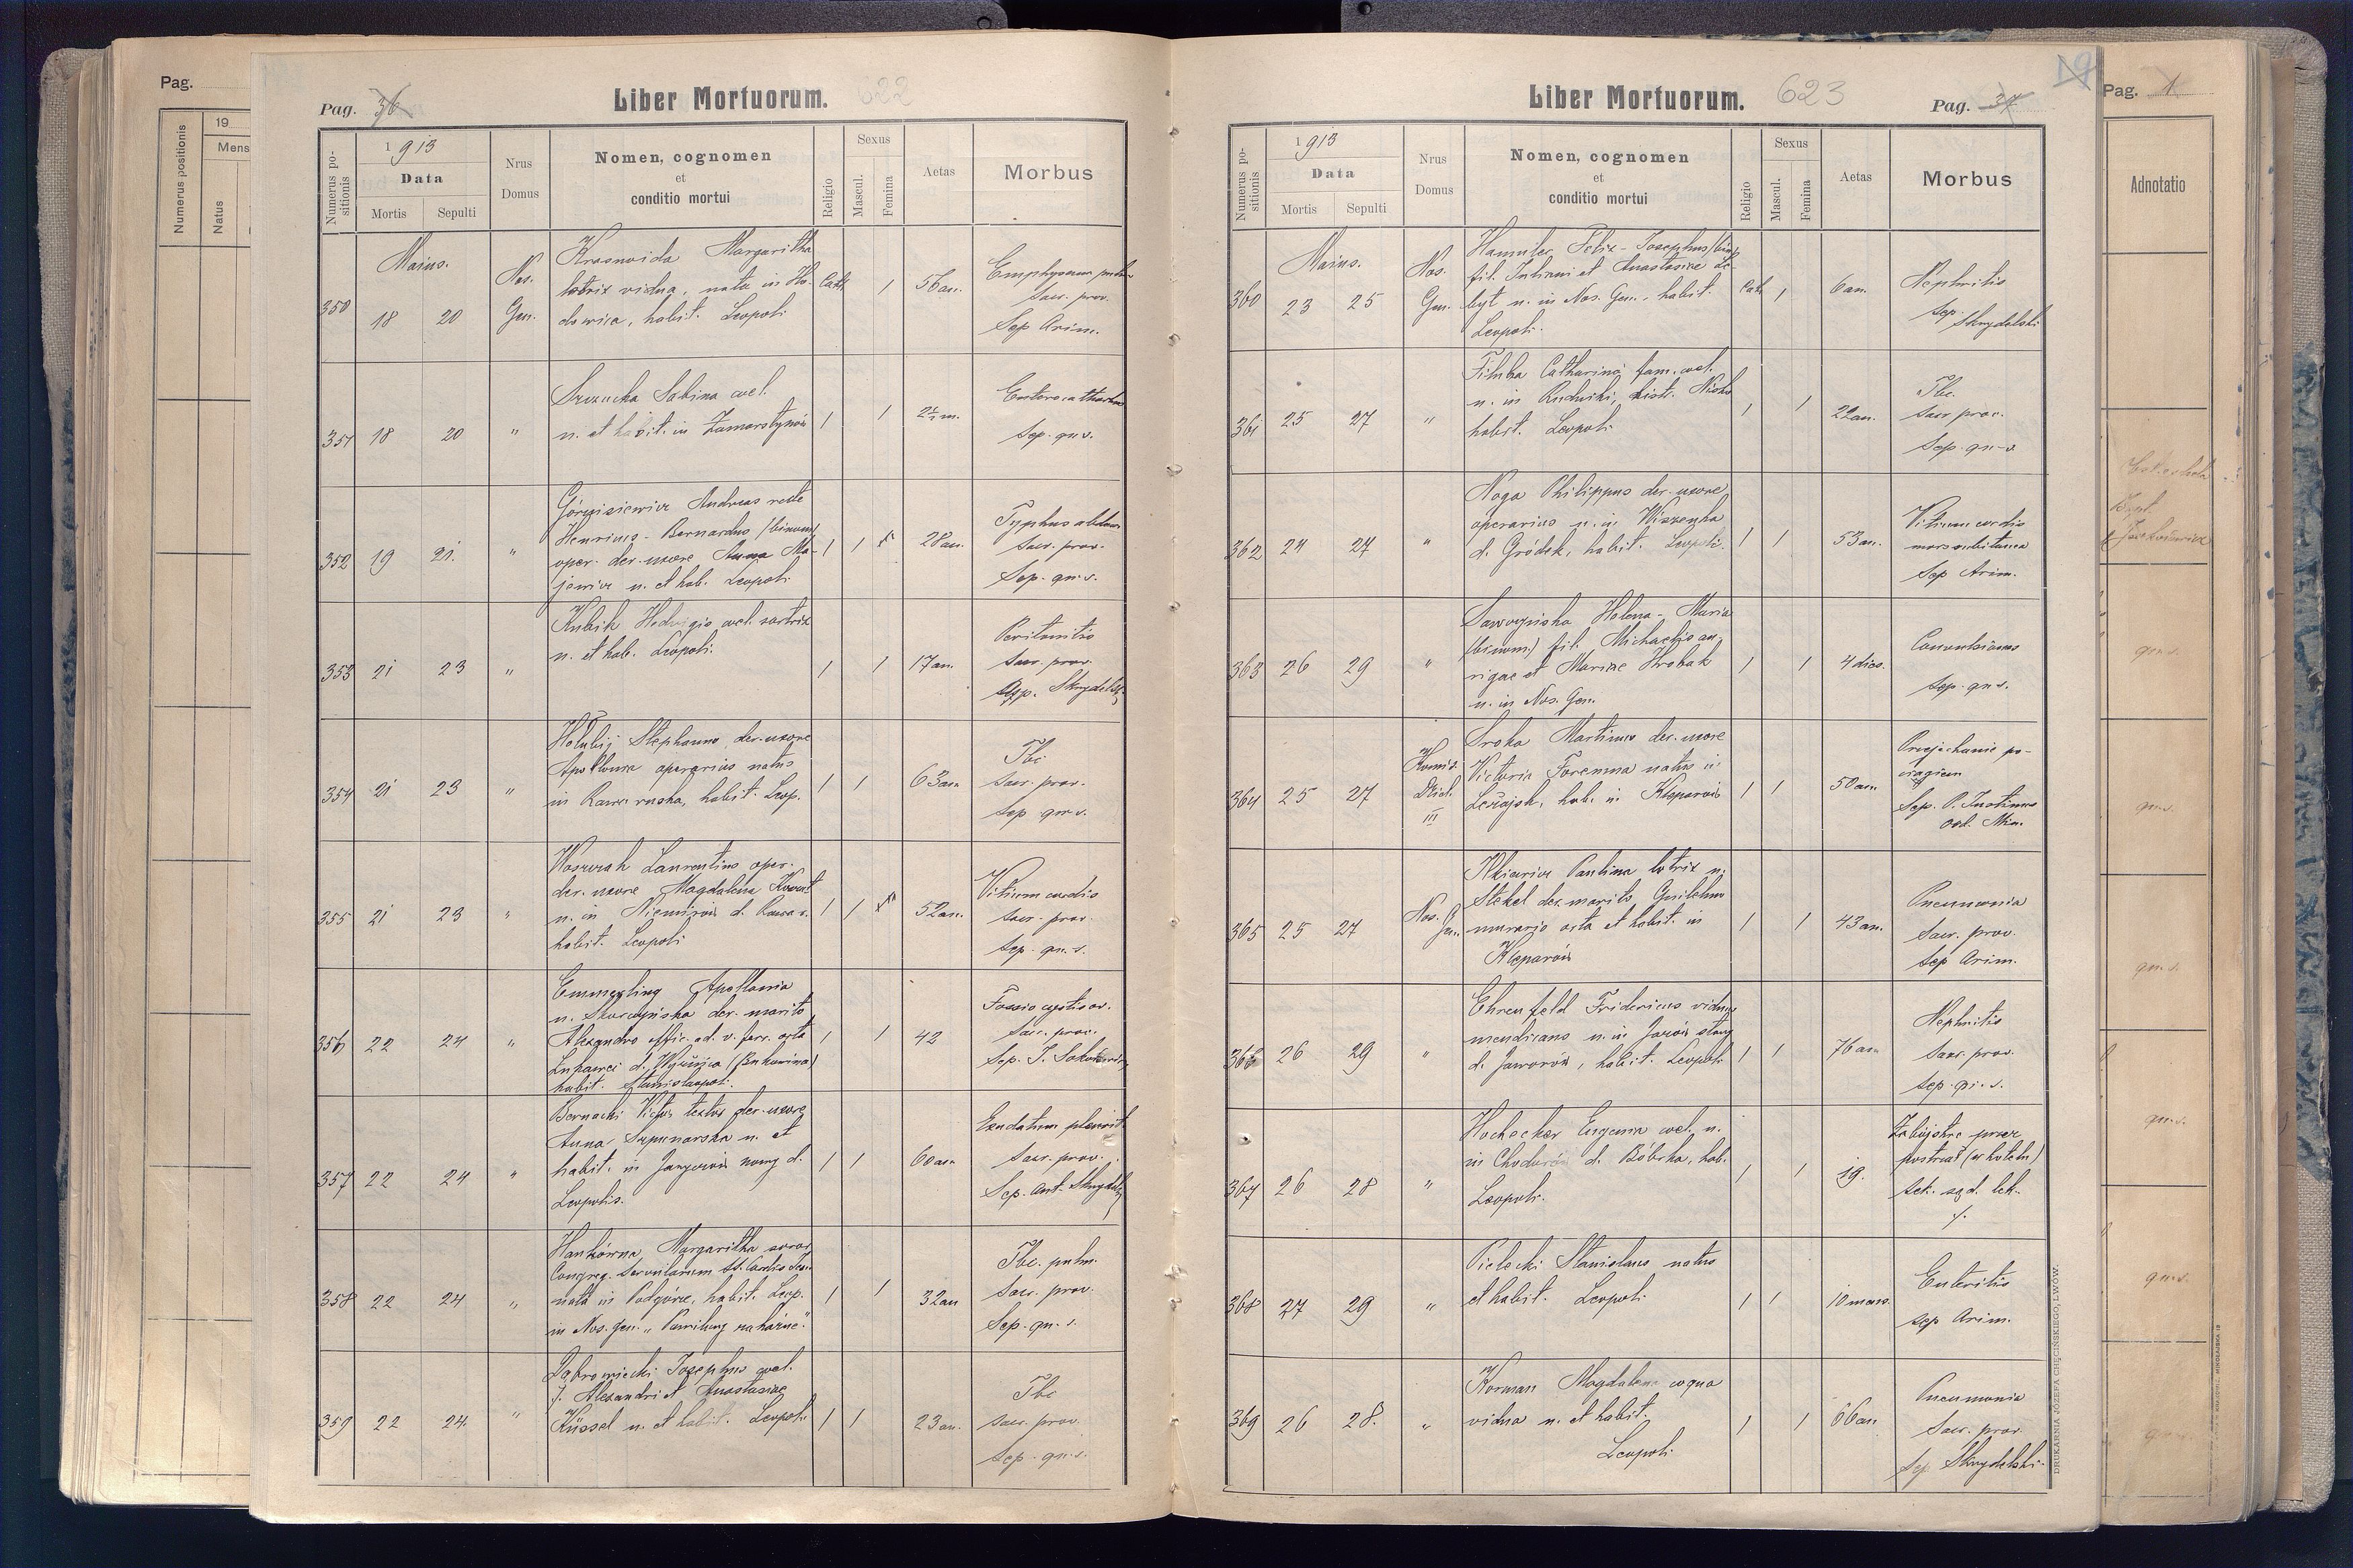 Pag.
Numerus positionis
19
Mens
Natus
Pag. 36
Liber Mortuorum.
622
Numerus positionis
1913
Data
Mortis
Sepulti
Nrus Domus
Nomen, cognomen
et
conditio mortui
Religio
Sexus
Mascul.
Femina
Aetas
Morbus
Maius.
350
18 20
Nos.
Gen.
Krasnoida Margaritha
lotrix vidua, nata in
dowica, habit. Leopoli
Cath.
1
56 an.
Emphysema pulm.
Sacr. prov.
Sep Arim.
351
18 20 "
Szczucka Sabina coel.
n. et habit. in Zamarstynów
1 1
2½ m.
Enterocatharhus
Sep. qu. s.
352
19 21. "
Andreas recte
Henricus - Bernardus (binom)
oper. der. uxore Anna Ma-
jewicz n. et hab. Leopoli
1 1
28 an.
Typhus abdom
Sacr. prov.
Sep. qu. s.
353
21 23 "
Kubik Hedvigis coel. sartrix
n. et hab. Leopoli.
1 1
17 an.
Peritonitis
Sacr. prov.
App. Skrydelski
354
21 23 "
Hołubij Stephanus der. uxore
Apollonia operarius natus
in Rawa ruska, habit. Leop.
1 1
63 an
Tbc
Sacr. prov.
Sep qu. s.
355
21 23 "
Laurentius oper.
der. uxore Magdalena
n. in Niemirów d. Rawa r.
habit. Leopoli
1 1
52 an.
Vitium cordis
Sacr. prov.
Sep. qu. s.
356
22 24 "
Emmerling Apollonia
n. Skarżyńska der. marito
Alexandro offic. ad. v. ferr. orta
d. Wyżnica (Bukowina)
habit. Stanislaopoli.
1 1
42
ov.
Sacr. prov.
Sep. S.
357
22 24 "
Bernacki Victor textor der. uxore
Anna Szpunarska n. et
habit. in Jaryczów nowy d.
Leopolis.
1 1
60 an
Exudatum pleurit.
Sacr. prov.
Sep. Ant. Skrydelski
358
22 24 "
Hankówna Margaritha soror
Congreg. Servularum SS. Cordis Jesu
nata in Podgórze, habit. Leop.
in Nos. Gen. "Pawilony zakaźne".
1 1
32 an
Tbc. pulm.
Sacr. prov.
Sep. qu. s.
359
22 24 "
Dąbrowiecki Josephus coel.
f. Alexandri et Anastasiae
Küssel n. et habit. Leopoli
1 1
23 an.
Tbc
Sacr. prov.
Sep. qu. s.
Liber Mortuorum.
623
Pag. 37
19
Numerus positionis
1913
Data
Mortis
Sepulti
Nrus Domus
Nomen, cognomen
et
conditio mortui
Religio
Sexus
Mascul.
Femina
Aetas
Morbus
Maius.
360
23 25
Nos.
Gen.
Felix - Josephus (bin)
fil. Juliani et Anastasiae
n. in Nos. Gen., habit.
Leopoli.
Cath.
1
6 an.
Nephritis
Sep.
Skrydelski
361
25 27 "
Catharina fam. coel.
n. in Rudniki, distr. Nisko
habit. Leopoli
1 1
22 an.
Tbc.
Sacr prov.
Sep. qu. s
362
24 27 "
Noga Philippus der. uxore
operarius n. in Wiszenka
d. Gródek, habit. Leopoli.
1 1
53 an.
Vitium cordis
mors subitanea
Sep Arim.
363
26 29 "
Sawczyńska Helena - Maria
(binom.) fil. Michaelis au-
rigae et Mariae Hrobak
n. in Nos. Gen.
1 1
4 dies.
Convulsiones
Sep. qu. s.
364
25 27
Komis.
Dziel.
III
Sroka Martinus der. uxore
Victoria Foremna natus in
Leżajsk, hab. in Kleparów
1 1
50 an
Przejechanie po-
ciągiem
Sep. P. Justinus
Ord. Min.
365
25 27
Nos.
Gen.
Paulina lotrix n.
Stekel der. marito Guilelmo
murario orta et habit. in
Kleparów
1 1
43 an.
Pneumonia
Sacr. prov.
Sep Arim.
366
26 29 "
Ehrenfeld Fridericus viduus
mendicans n. in Jazów stary
d. Jaworów, habit. Leopoli
1 1
76 an
Nephritis
Sacr. prov.
Sep. qu. s.
367
26 28 "
Hochecker Eugenia coel. n.
in Chodorów d. Bóbrka, hab.
Leopoli.
1 1
19.
Zabójstwo przez
postrzał (w hotelu)
Sek. sąd. lek.
./.
368
27 29 "
Pielecki Stanislaus natus
et habit. Leopoli
1 1
10 mens.
Enteritis
Sep Arim.
369
26 28. "
Korman Magdalena coqua
vidua n. et habit.
Leopoli
1 1
66 an
Pneumonia
Sacr. prov.
Sep Skrydelski
DRUKARNIA JÓZEFA CHĘCIŃSKIEGO, LWÓW.
Pag. 1
Adnotatio
qu. s.
qu. s.
qu. s.
qu. s.
qu. s.
qu. s.